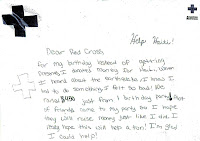 Help Haiti!
Dear Red Cross,
For my birthday instead of getting
presents, I wanted money for Haiti. When
I heard about the earthquake, I knew I
had to do something. I felt so bad! We
raised $480 just from 1 birthday party.
of friends came to my party so I hope
they will raise money just like I did. I
really hope this will help a ton! I'm glad
I could help!